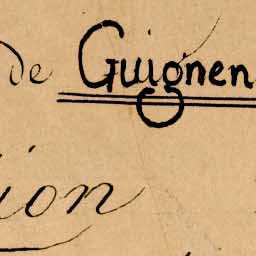 de Guignen
ion